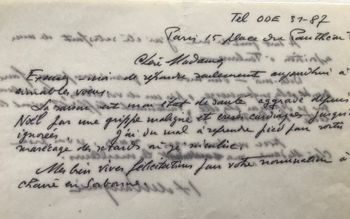 Tel ODE 31-87
Paris 15 place du Panthéon
Chère Madame
Excusez-moi de répondre seulement aujourd'hui à
aimables voeux.
La raison est mon état de santé aggravé depuis
Noël par une grippe maligne et crises cardiaques jusqu'
ignorées J'ai du mal à reprendre pied par
marécage des retards où je m'enlise
Mes bien vives félicitations pour votre nomination à
chaire en Sorbonne